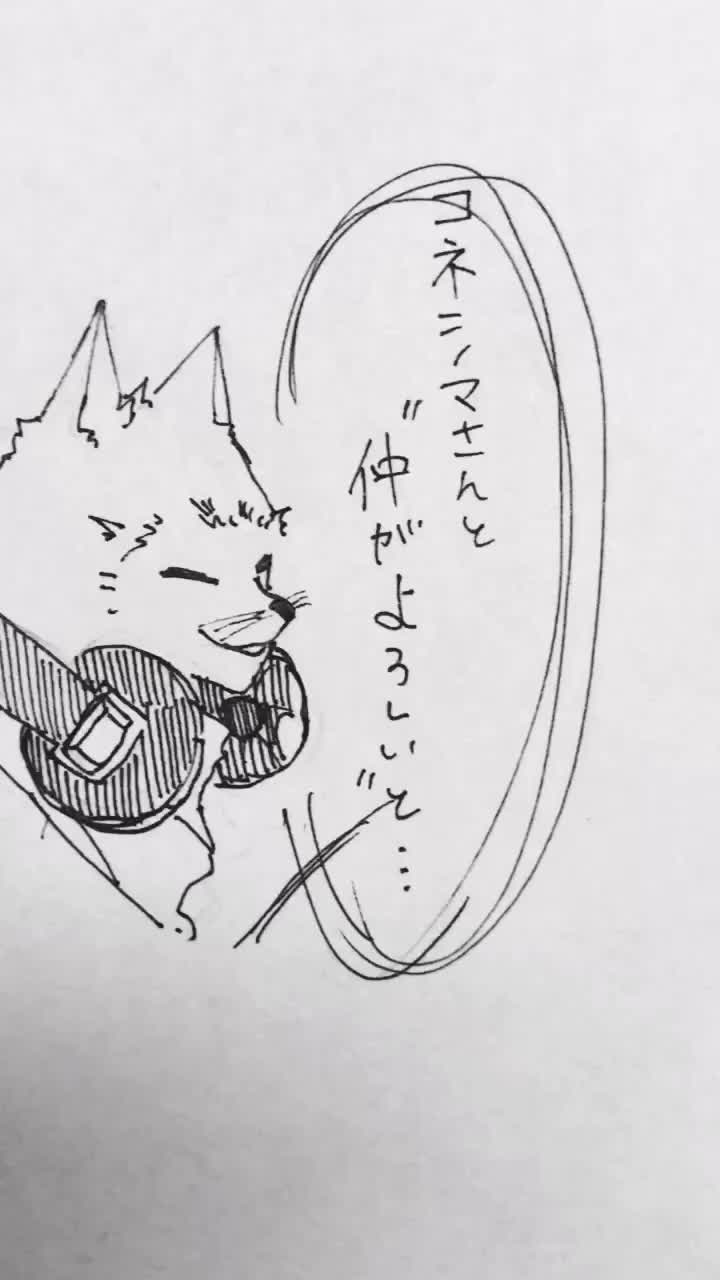 コネシマさんと
"仲がよろしい"と…